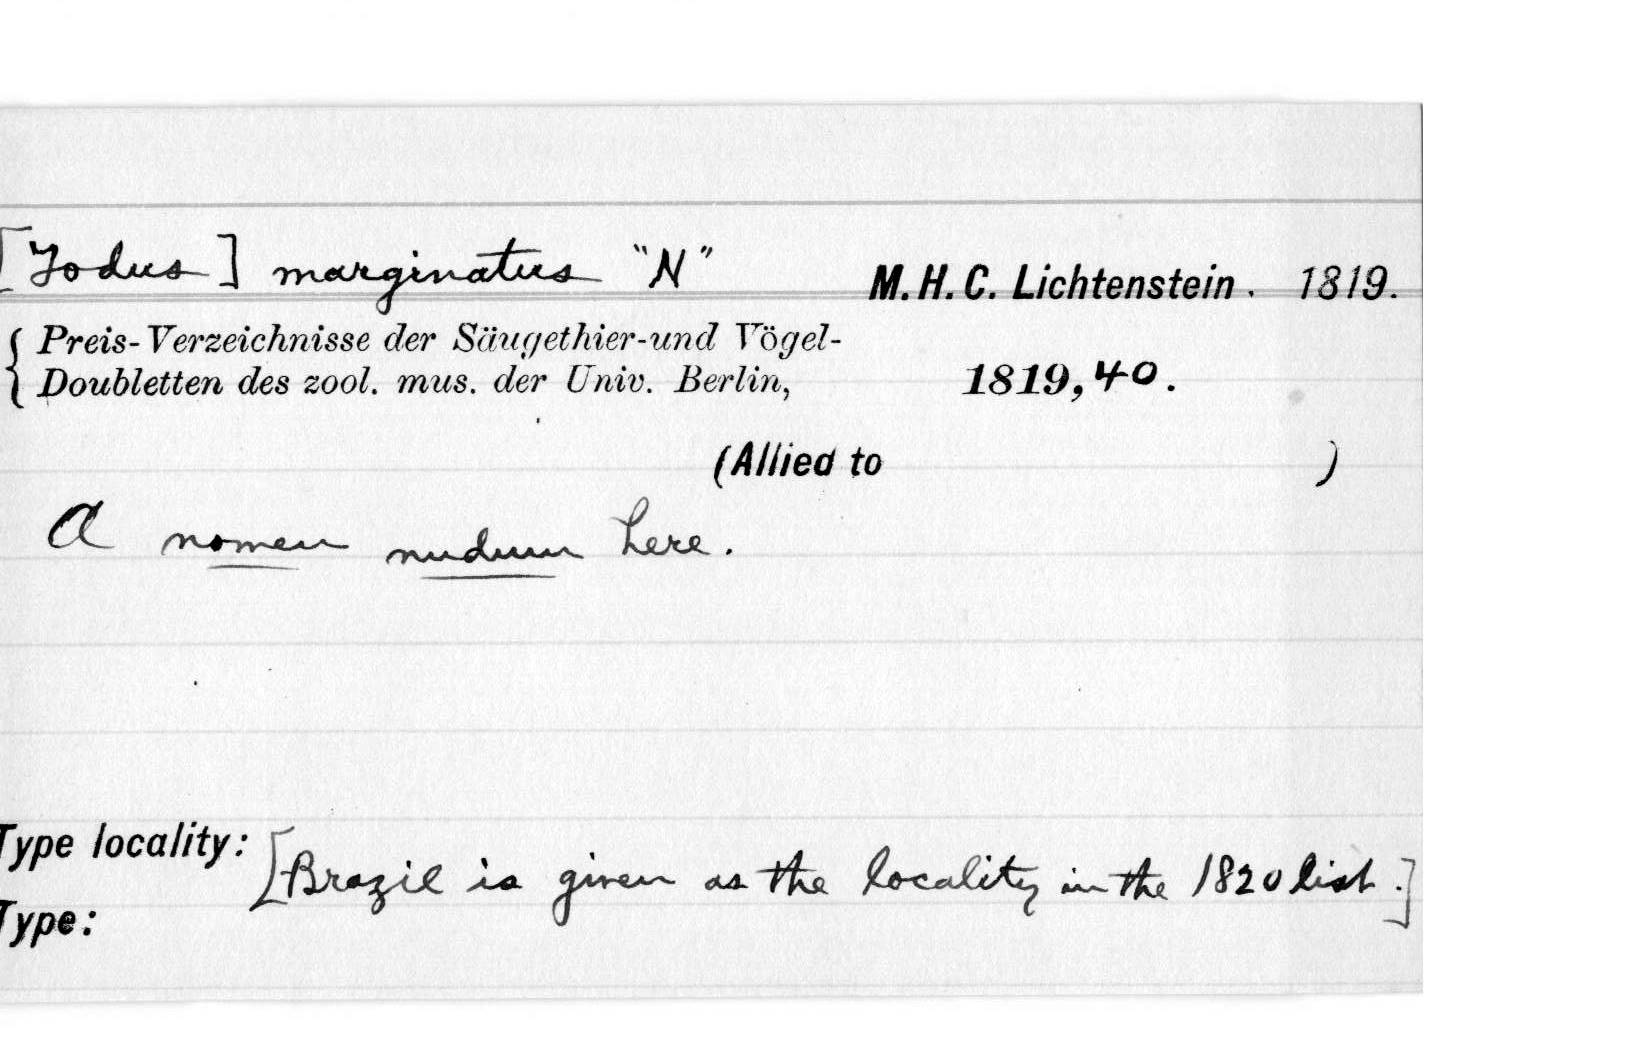 [Todus] marginatus "N" M. H. C. Lichtenstein. 1819.
{ Preis-Verzeichnisse der Säugethier-und Vögel-
Doubletten des zool. mus. der Univ. Berlin, 1819, 40.
(Allied to )
A nomen nudum here.
Type locality: [Brazil is given as the locality in the 1820 list.]
Type: